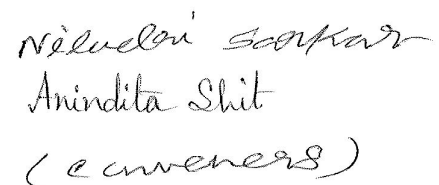 Niladri Sarkar
Anindita Shit
(conveners)